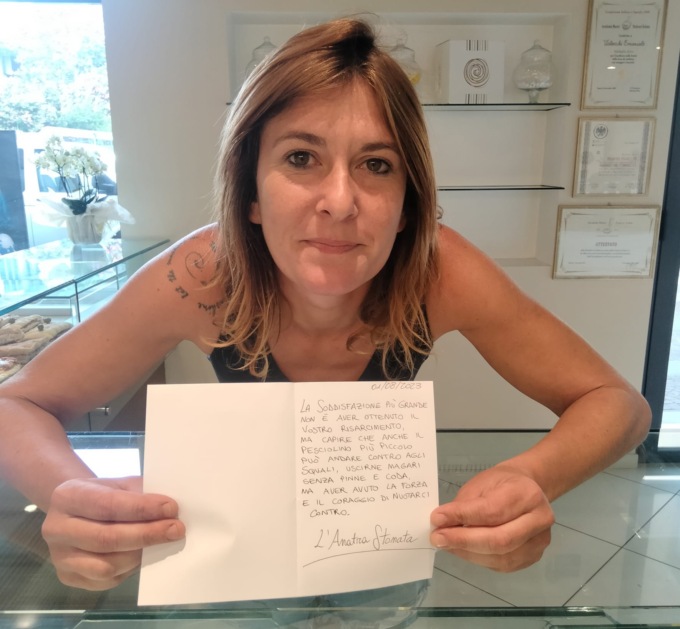 01/08/2023
LA SODDISFAZIONE PIÙ GRANDE
NON È AVER OTTENUTO IL
VOSTRO RISARCIMENTO,
MA CAPIRE CHE ANCHE IL
PESCIOLINO PIÙ PICCOLO
PUÒ ANDARE CONTRO AGLI
SQUALI, USCIRNE MAGARI
SENZA PINNE E CODA
MA AVER AVUTO LA FORZA
E IL CORAGGIO DI NUOTARCI
CONTRO.
L'Anatra Stonata
ATTESTATO